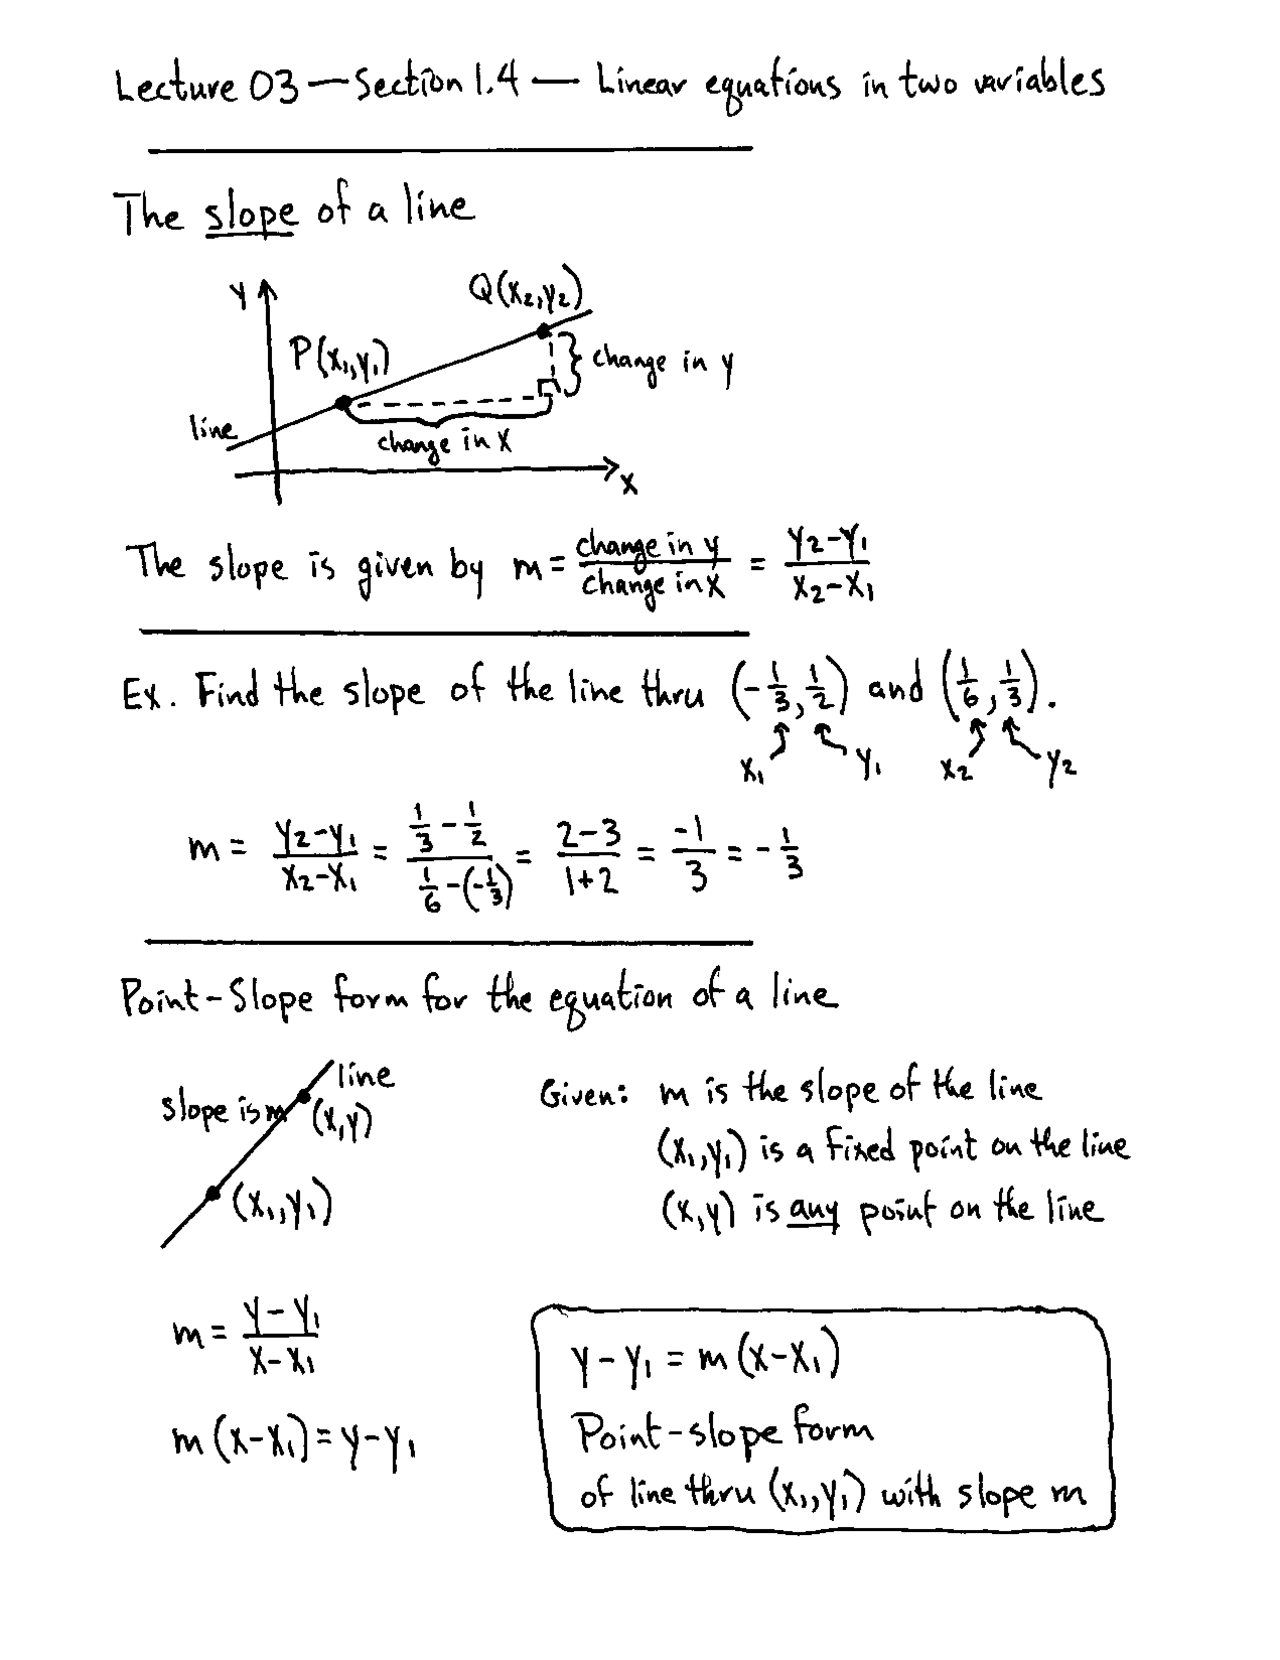 Lecture 03 — Section 1.4 — Linear equations in two variables
The slope of a line
y
Q(x₂,y₂)
P(x₁,y₁)
change in y
line
change in x
x
The slope is given by m = change in y / change in x = (y₂-y₁)/(x₂-x₁)
Ex. Find the slope of the line thru (-1/3, 1/2) and (1/6, 1/3).
x₁ y₁ x₂ y₂
m = (y₂-y₁)/(x₂-x₁) = (1/3 - 1/2)/(1/6 - (-1/3)) = (2-3)/(1+2) = -1/3 = - 1/3
Point-Slope form for the equation of a line
line
slope is m (x,y)
(x₁,y₁)
Given: m is the slope of the line
(x₁,y₁) is a fixed point on the line
(x,y) is any point on the line
m = (y-y₁)/(x-x₁)
m(x-x₁) = y-y₁
y-y₁ = m(x-x₁)
Point-slope form
of line thru (x₁,y₁) with slope m